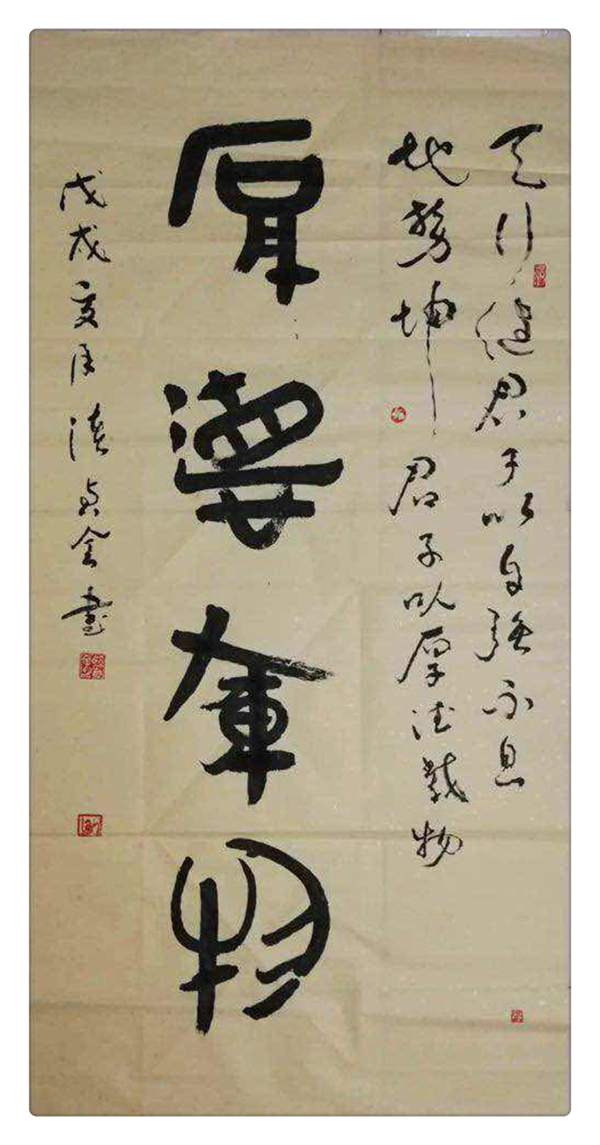 天行健君子以自强不息
地势坤君子以厚德载物
厚德载物
戊戌 月 书